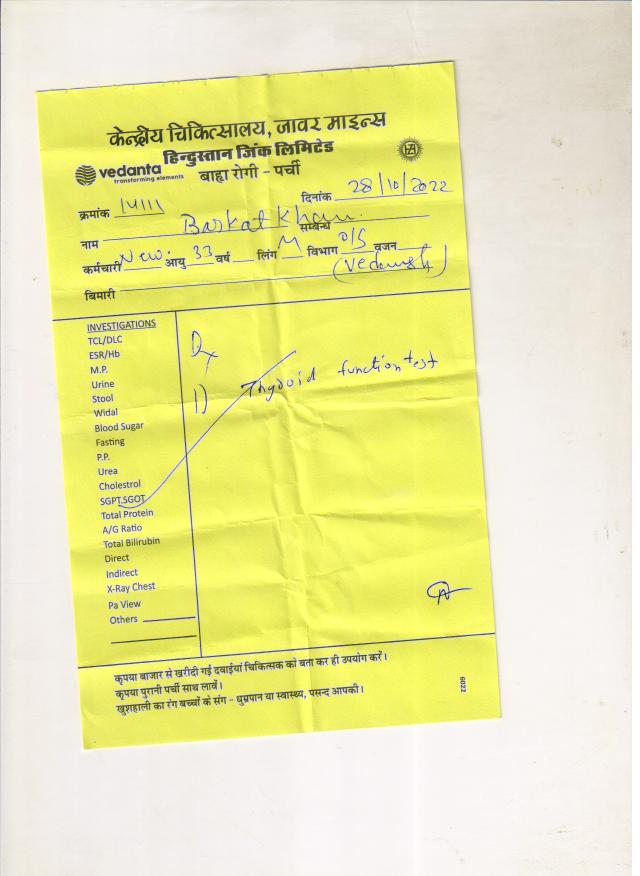 केन्द्रीय चिकित्सालय, जावर माइन्स
हिन्दुस्तान जिंक लिमिटेड
vedanta
transforming elements
बाह्य रोगी - पर्ची
HZL
क्रमांक 14111 दिनांक 28/10/2022
नाम Barkat Khan सम्बन्ध
कर्मचारी New आयु 33 वर्ष लिंग M विभाग O/S वजन
(Vedansh)
बिमारी
INVESTIGATIONS
TCL/DLC
ESR/Hb
M.P.
Urine
Stool
Widal
Blood Sugar
Fasting
P.P.
Urea
Cholestrol
SGPT,SGOT
Total Protein
A/G Ratio
Total Bilirubin
Direct
Indirect
X-Ray Chest
Pa View
Others
1) Thyroid function test
कृपया बाजार से खरीदी गई दवाईयां चिकित्सक को बता कर ही उपयोग करें।
कृपया पुरानी पर्ची साथ लावें।
खुशहाली का रंग बच्चों के संग - धुम्रपान या स्वास्थ्य, पसन्द आपकी।
6022